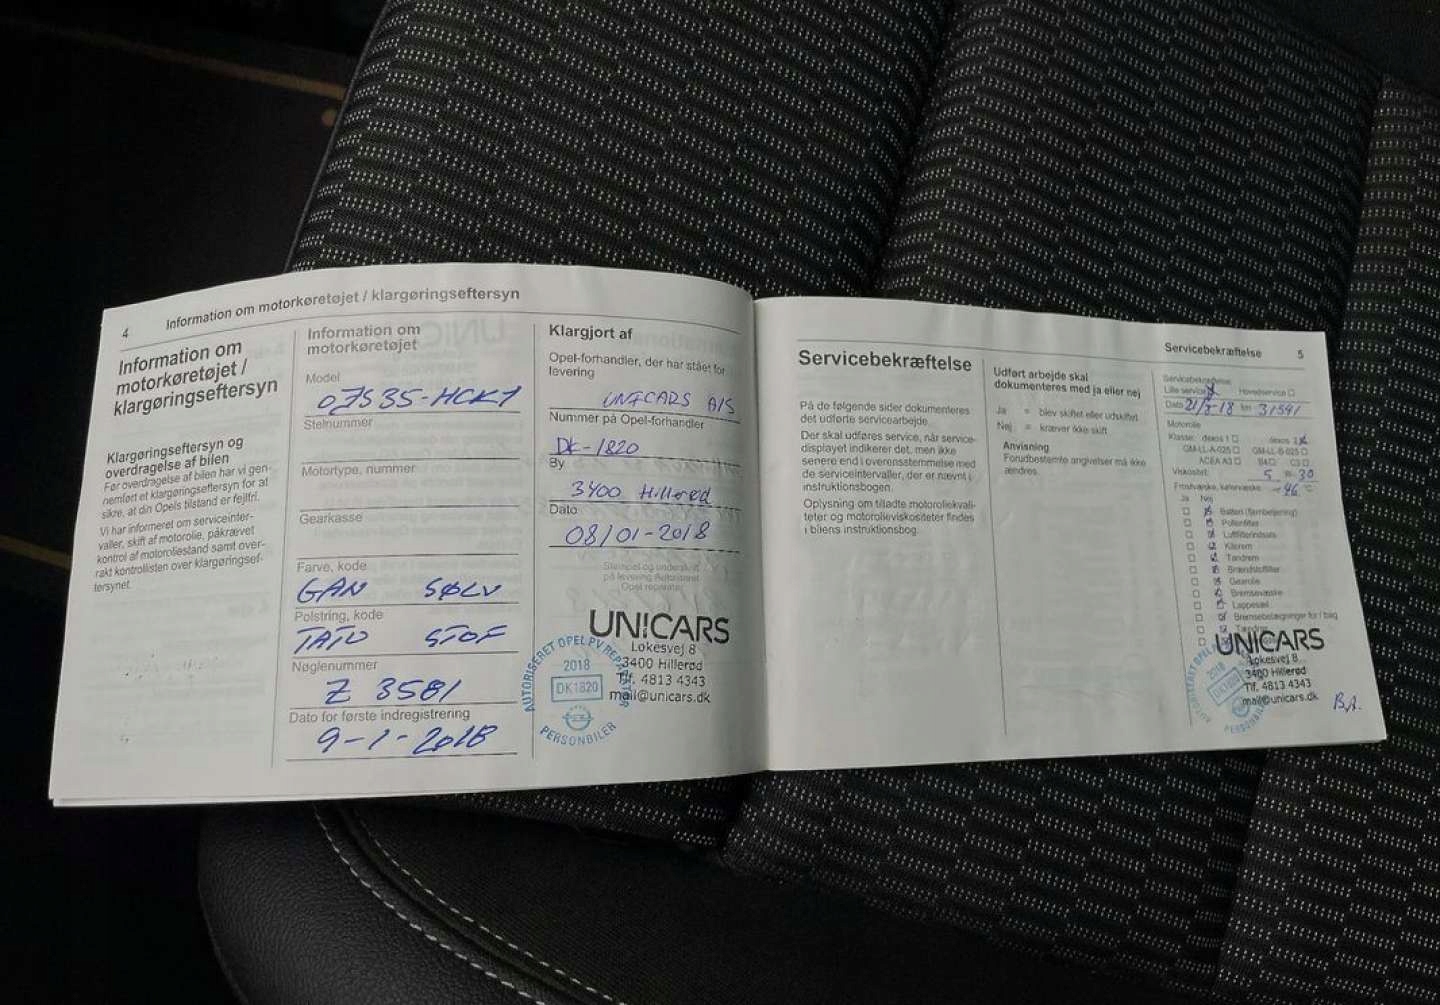 4 Information om motorkøretøjet / klargøringseftersyn
Information om
motorkøretøjet /
klargøringseftersyn
Klargøringseftersyn og
overdragelse af bilen
Før overdragelse af bilen har vi gen-
nemført et klargøringseftersyn for at
sikre, at din Opels tilstand er fejlfri.
Vi har informeret om serviceinter-
valler, skift af motorolie, påkrævet
kontrol af motoroliestand samt over-
rakt kontrollisten over klargøringsef-
tersynet.
Information om
motorkøretøjet
Model
0JS35-HCK1
Stelnummer
Motortype, nummer
Gearkasse
Farve, kode
GAN SØLV
Polstring, kode
TATO STOF
Nøglenummer
Z 3581
Dato for første indregistrering
9-1-2018
Klargjort af
Opel-forhandler, der har stået for
levering
UNICARS A/S
Nummer på Opel-forhandler
DK-1820
By
3400 Hillerød
Dato
08/01-2018
Stempel og underskrift
på levering Autoriseret
Opel reparatør
UNICARS
Lokesvej 8
3400 Hillerød
Tlf. 4813 4343
mail@unicars.dk
AUTORISERET OPEL PV REPARATØR
2018
DK1820
PERSONBILER
Servicebekræftelse 5
Servicebekræftelse
På de følgende sider dokumenteres
det udførte servicearbejde.
Der skal udføres service, når service-
displayet indikerer det, men ikke
senere end i overensstemmelse med
de serviceintervaller, der er nævnt i
instruktionsbogen.
Oplysning om tilladte motoroliekvali-
teter og motorolieviskositeter findes
i bilens instruktionsbog.
Udført arbejde skal
dokumenteres med ja eller nej
Ja = blev skiftet eller udskiftet
Nej = kræver ikke skift
Anvisning
Forudbestemte angivelser må ikke
ændres.
Servicebekræftelse
Lille service Hovedservice
Dato 21/8-18 km 31591
Motorolie
Klasse: dexos 1 dexos 2
GM-LL-A-025 GM-LL-B-025
ACEA A3 B4 C3
Viskositet: 5 W-30
Frostvæske, kølervæske -46 °C
Ja Nej
Batteri (fjernbetjening)
Pollenfilter
Luftfilterindsats
Kilerem
Tandrem
Brændstoffilter
Gearolie
Bremsevæske
Lappesæt
Bremsebelægninger for / bag
Tændrør
UNICARS
Lokesvej 8
3400 Hillerød
Tlf. 4813 4343
mail@unicars.dk
2018
DK1820
PERSONBILER
B.A.